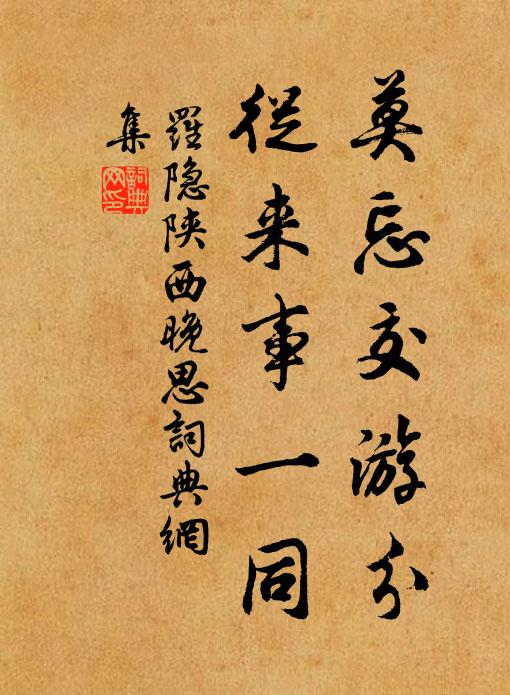 莫忘交游分
從来事一同
羅隐陕西晚思詞典網
集
詞典
网印